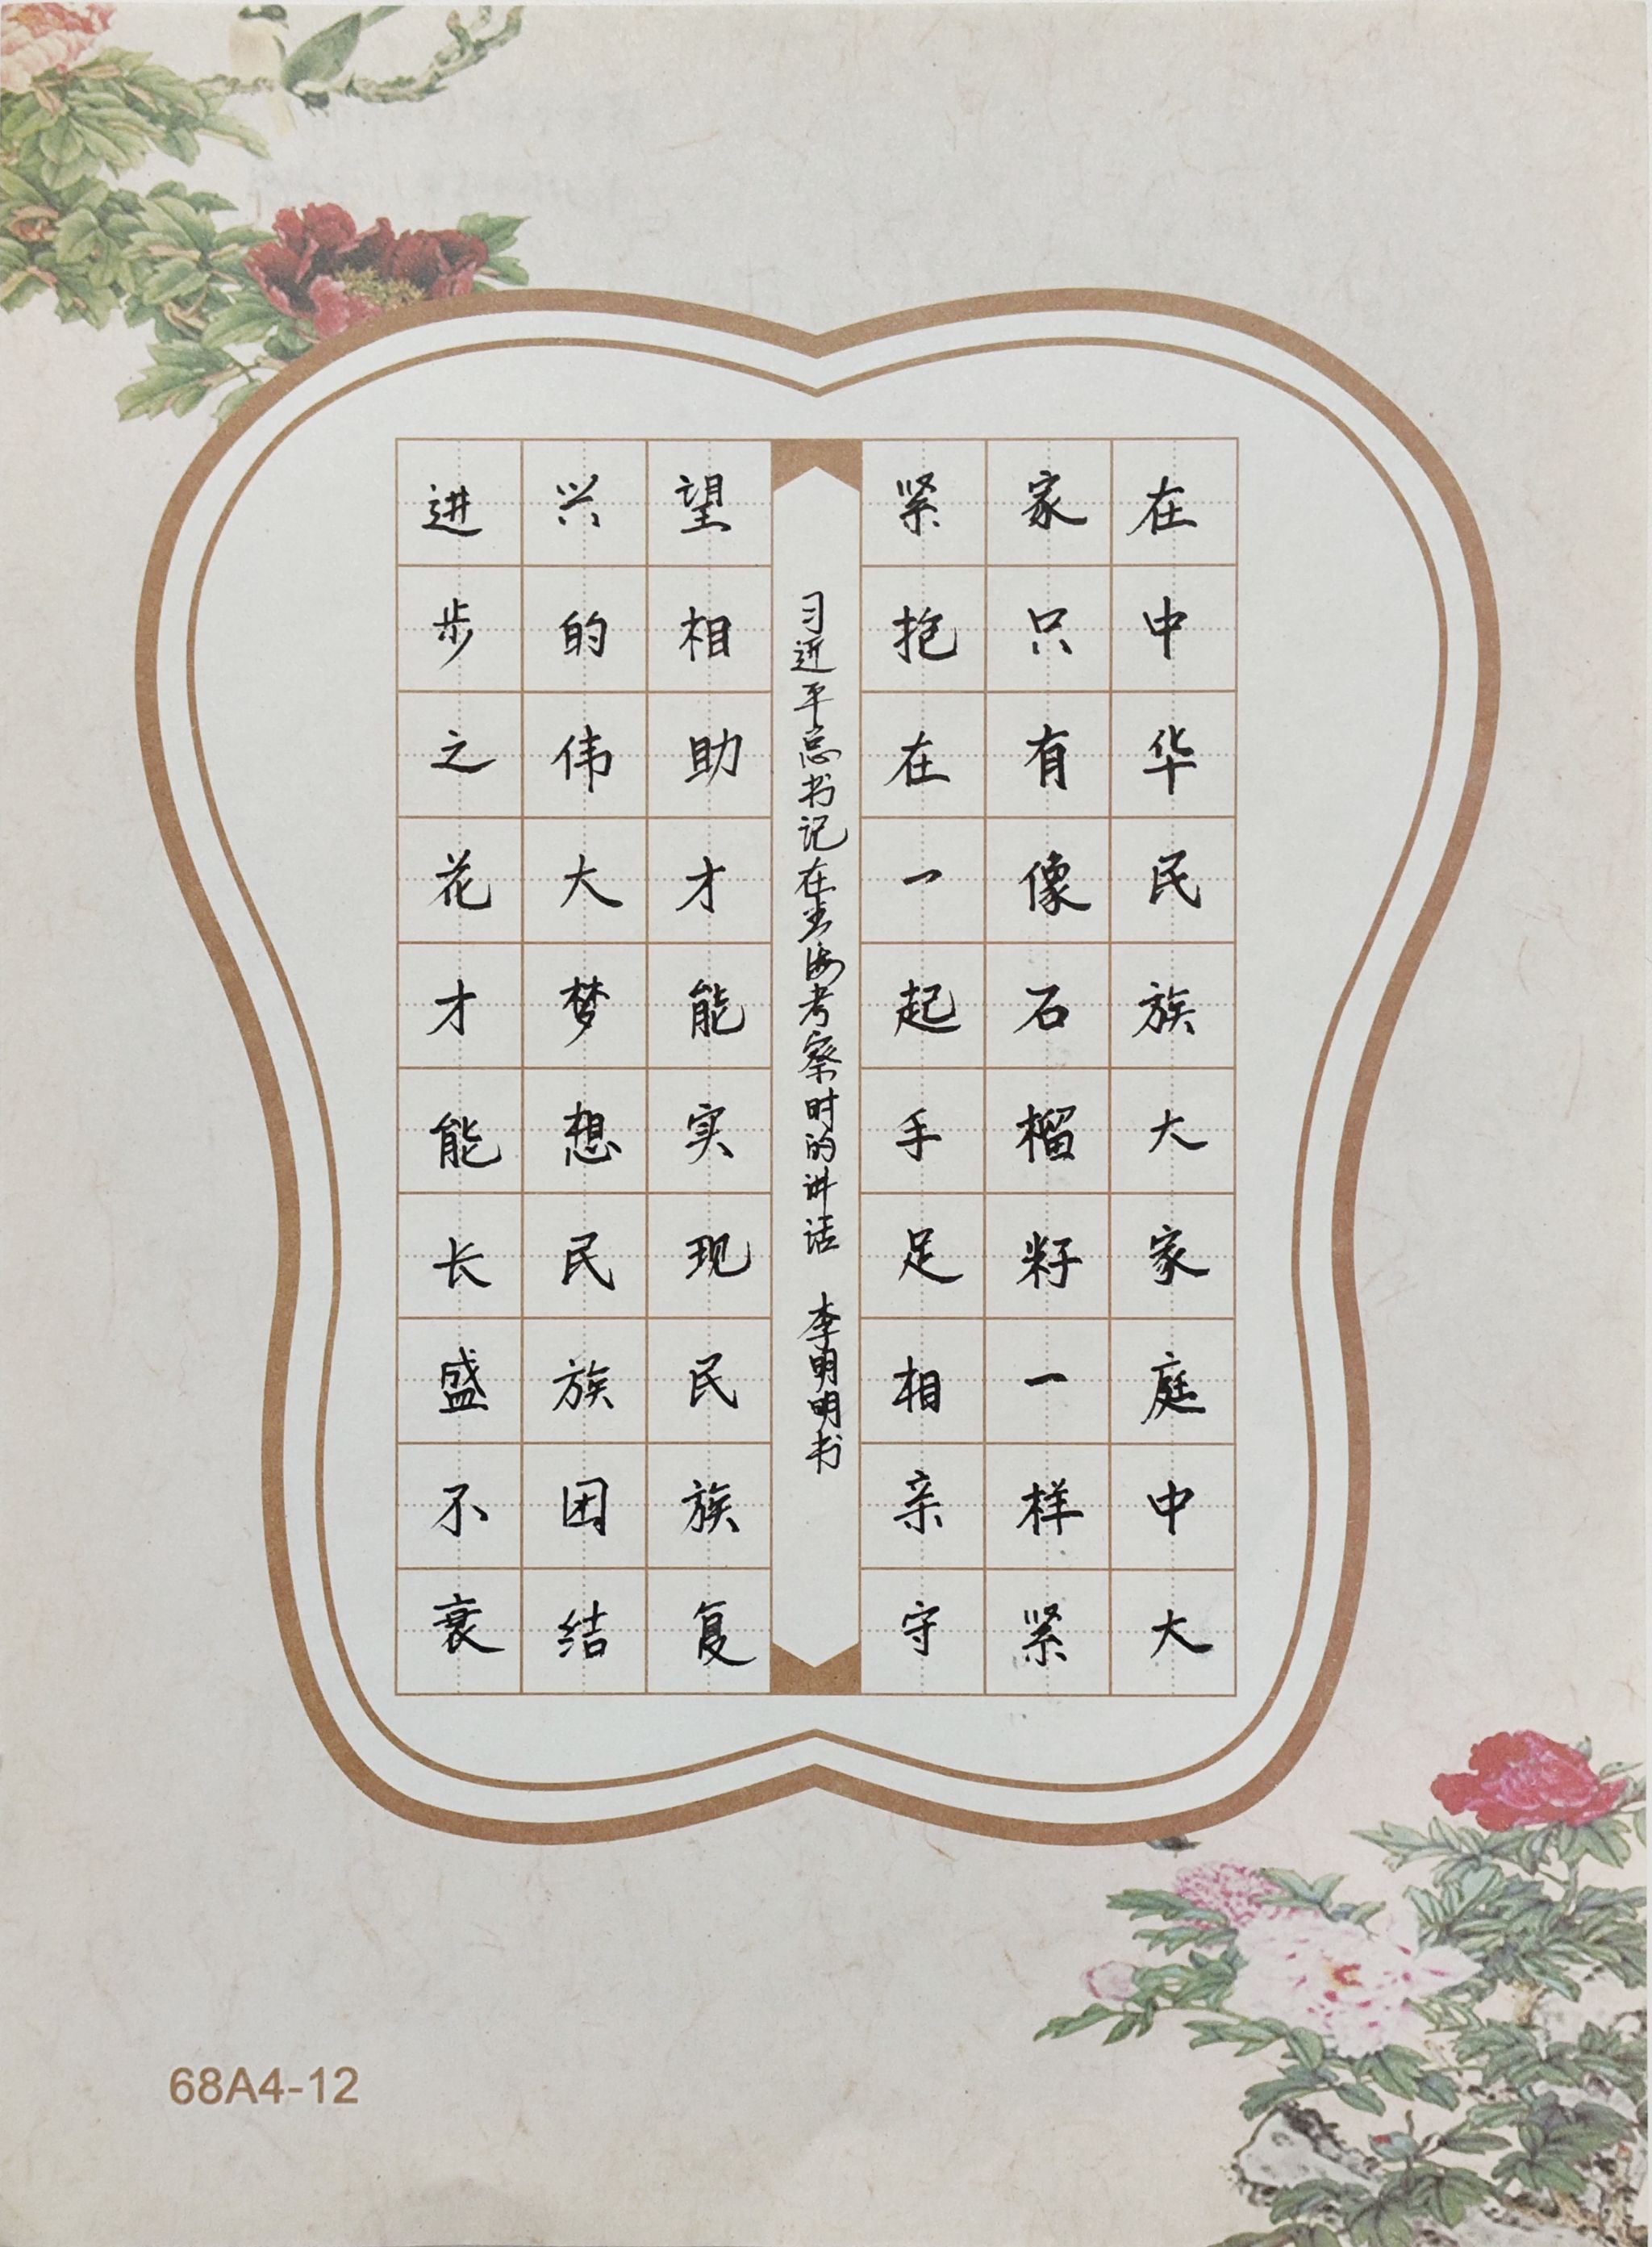 在中华民族大家庭中大
家只有像石榴籽一样紧
紧抱在一起手足相亲守
望相助才能实现民族复
兴的伟大梦想民族团结
进步之花才能长盛不衰
习近平总书记在青海考察时的讲话 李明明书
68A4-12